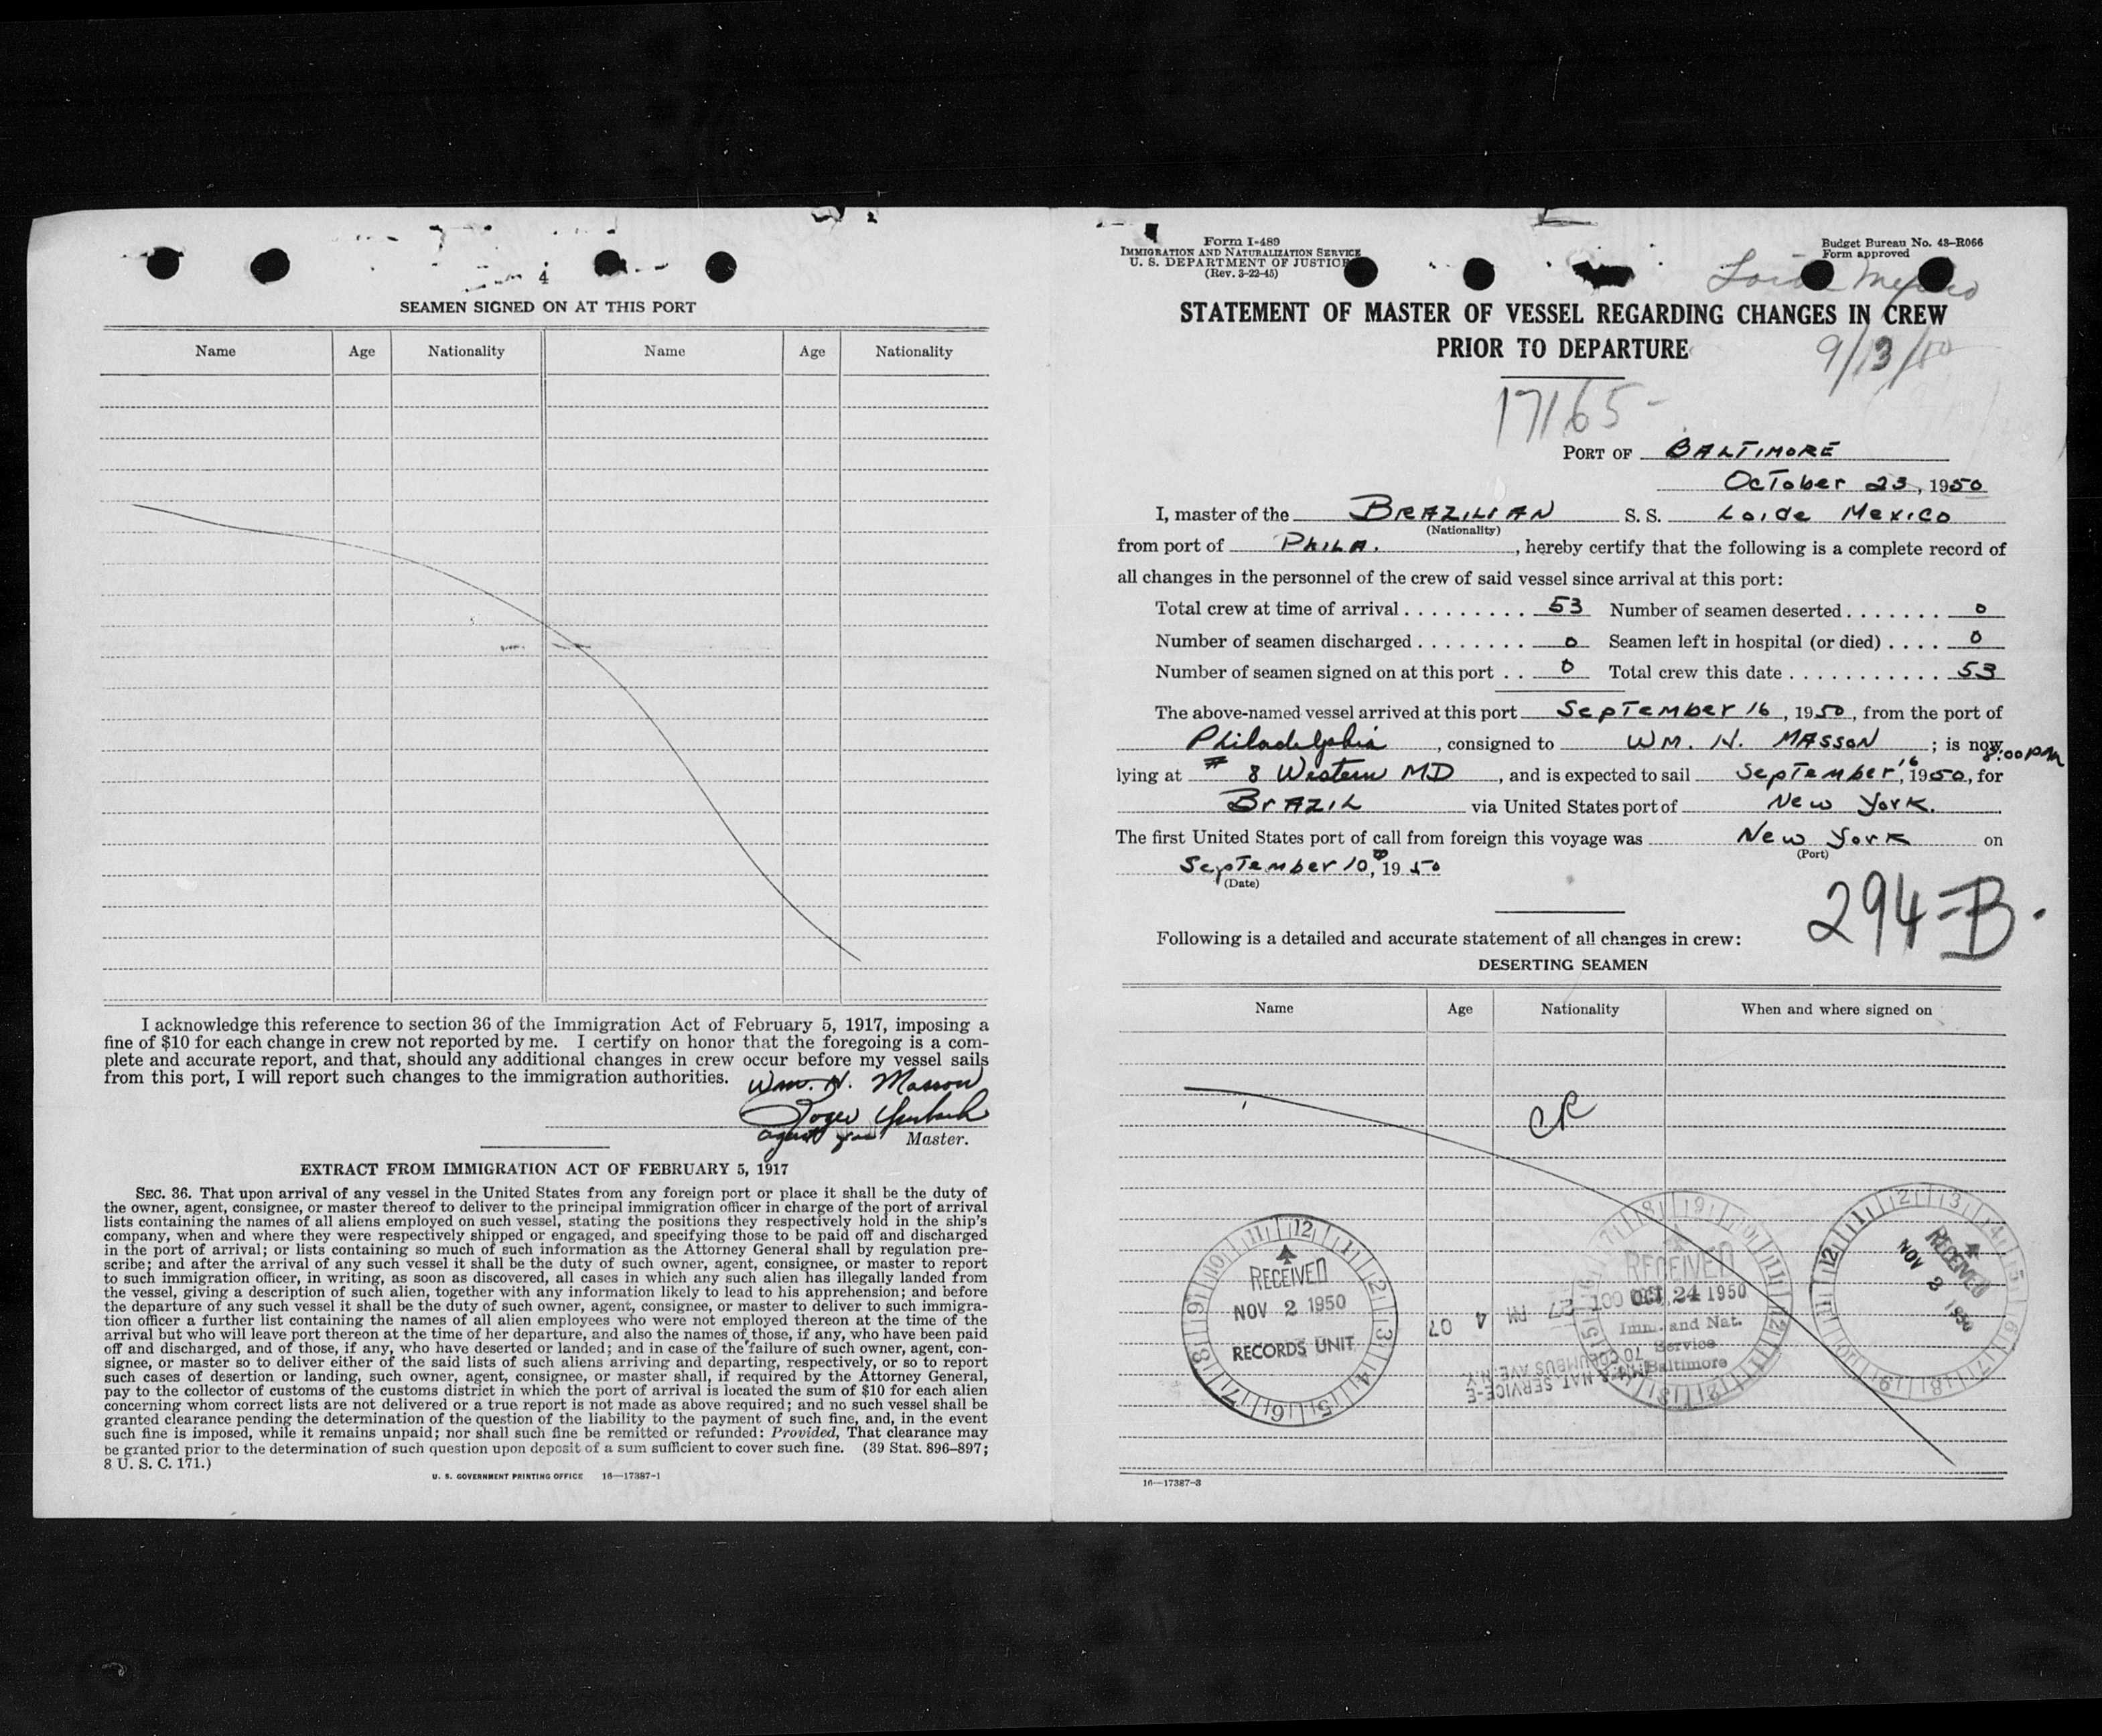 4
SEAMEN SIGNED ON AT THIS PORT
Name Age Nationality Name Age Nationality
I acknowledge this reference to section 36 of the Immigration Act of February 5, 1917, imposing a
fine of $10 for each change in crew not reported by me. I certify on honor that the foregoing is a com-
plete and accurate report, and that, should any additional changes in crew occur before my vessel sails
from this port, I will report such changes to the immigration authorities.
Wm. H. Masson
Roger
agent Master.
EXTRACT FROM IMMIGRATION ACT OF FEBRUARY 5, 1917
SEC. 36. That upon arrival of any vessel in the United States from any foreign port or place it shall be the duty of
the owner, agent, consignee, or master thereof to deliver to the principal immigration officer in charge of the port of arrival
lists containing the names of all aliens employed on such vessel, stating the positions they respectively hold in the ship's
company, when and where they were respectively shipped or engaged, and specifying those to be paid off and discharged
in the port of arrival; or lists containing so much of such information as the Attorney General shall by regulation pre-
scribe; and after the arrival of any such vessel it shall be the duty of such owner, agent, consignee, or master to report
to such immigration officer, in writing, as soon as discovered, all cases in which any such alien has illegally landed from
the vessel, giving a description of such alien, together with any information likely to lead to his apprehension; and before
the departure of any such vessel it shall be the duty of such owner, agent, consignee, or master to deliver to such immigra-
tion officer a further list containing the names of all alien employees who were not employed thereon at the time of the
arrival but who will leave port thereon at the time of her departure, and also the names of those, if any, who have been paid
off and discharged, and of those, if any, who have deserted or landed; and in case of the failure of such owner, agent, con-
signee, or master so to deliver either of the said lists of such aliens arriving and departing, respectively, or so to report
such cases of desertion or landing, such owner, agent, consignee, or master shall, if required by the Attorney General,
pay to the collector of customs of the customs district in which the port of arrival is located the sum of $10 for each alien
concerning whom correct lists are not delivered or a true report is not made as above required; and no such vessel shall be
granted clearance pending the determination of the question of the liability to the payment of such fine, and, in the event
such fine is imposed, while it remains unpaid; nor shall such fine be remitted or refunded: Provided, That clearance may
be granted prior to the determination of such question upon deposit of a sum sufficient to cover such fine. (39 Stat. 896–897;
8 U. S. C. 171.)
U. S. GOVERNMENT PRINTING OFFICE 16—17387-1
Form I-489
IMMIGRATION AND NATURALIZATION SERVICE
U. S. DEPARTMENT OF JUSTICE
(Rev. 3-22-45)
Budget Bureau No. 43-R066
Form approved
Loide Mexico
STATEMENT OF MASTER OF VESSEL REGARDING CHANGES IN CREW
PRIOR TO DEPARTURE
9/13/50
17165-
PORT OF BALTIMORE
October 23, 1950
I, master of the BRAZILIAN S. S. Loide Mexico
(Nationality)
from port of PHILA., hereby certify that the following is a complete record of
all changes in the personnel of the crew of said vessel since arrival at this port:
Total crew at time of arrival ......... 53 Number of seamen deserted ....... 0
Number of seamen discharged ........ 0 Seamen left in hospital (or died) .... 0
Number of seamen signed on at this port .. 0 Total crew this date ........... 53
The above-named vessel arrived at this port September 16, 1950, from the port of
Philadelphia, consigned to WM. H. MASSON; is now
8:00 PM
lying at # 8 Western MD, and is expected to sail September 16, 1950, for
BRAZIL via United States port of New York.
The first United States port of call from foreign this voyage was New York on
(Port)
September 10, 1950
(Date)
294-B.
Following is a detailed and accurate statement of all changes in crew:
DESERTING SEAMEN
Name Age Nationality When and where signed on
CR
RECEIVED
NOV 2 1950
RECORDS UNIT
RECEIVED
OCT 24 1950
Imm. and Nat.
Service
Baltimore
OCT 27 PM 4 07
& NAT SERVICE-E
70 COLUMBUS AVE. N.Y.
RECEIVED
NOV 2 1950
16—17387-3